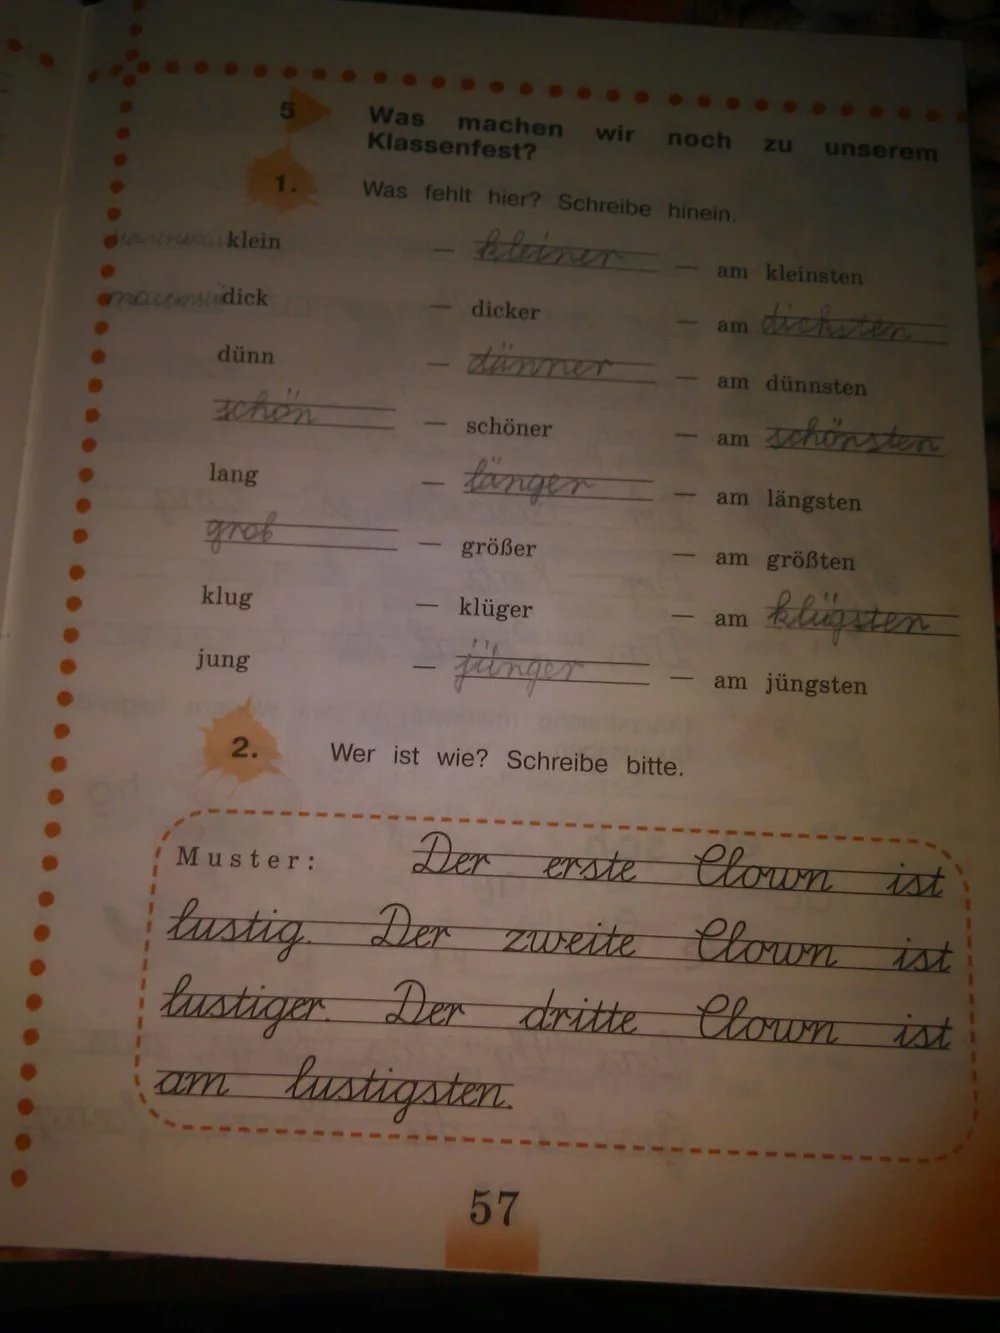 5 Was machen wir noch zu unserem
Klassenfest?
1. Was fehlt hier? Schreibe hinein.
klein — kleiner — am kleinsten
dick — dicker — am dicksten
dünn — dünner — am dünnsten
schön — schöner — am schönsten
lang — länger — am längsten
groß — größer — am größten
klug — klüger — am klügsten
jung — jünger — am jüngsten
2. Wer ist wie? Schreibe bitte.
Muster: Der erste Clown ist
lustig. Der zweite Clown ist
lustiger. Der dritte Clown ist
am lustigsten.
57